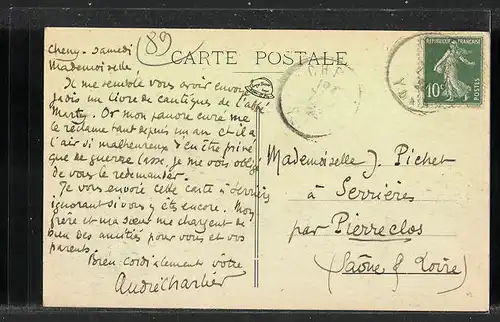 89
CARTE POSTALE
Cheny - Samedi
Mademoiselle
Il me semble vous avoir envoyé
jadis un livre de cantiques de l'abbé
Marty. Or mon pauvre curé me
le réclame tant depuis un an et il a
l'air si malheureux d'en être privé
que de guerre lasse, je me vois obligé
de vous le redemander.
Je vous envoie cette carte à Serrières
ignorant si vous y êtes encore. Mon
frère et ma sœur me chargent de
bien des amitiés pour vous et vos
parents.
Bien cordialement vôtre
André Charlier
RÉPUBLIQUE FRANÇAISE
10c
Mademoiselle J. Pichet
à Serrières
par Pierreclos
(Saône & Loire)